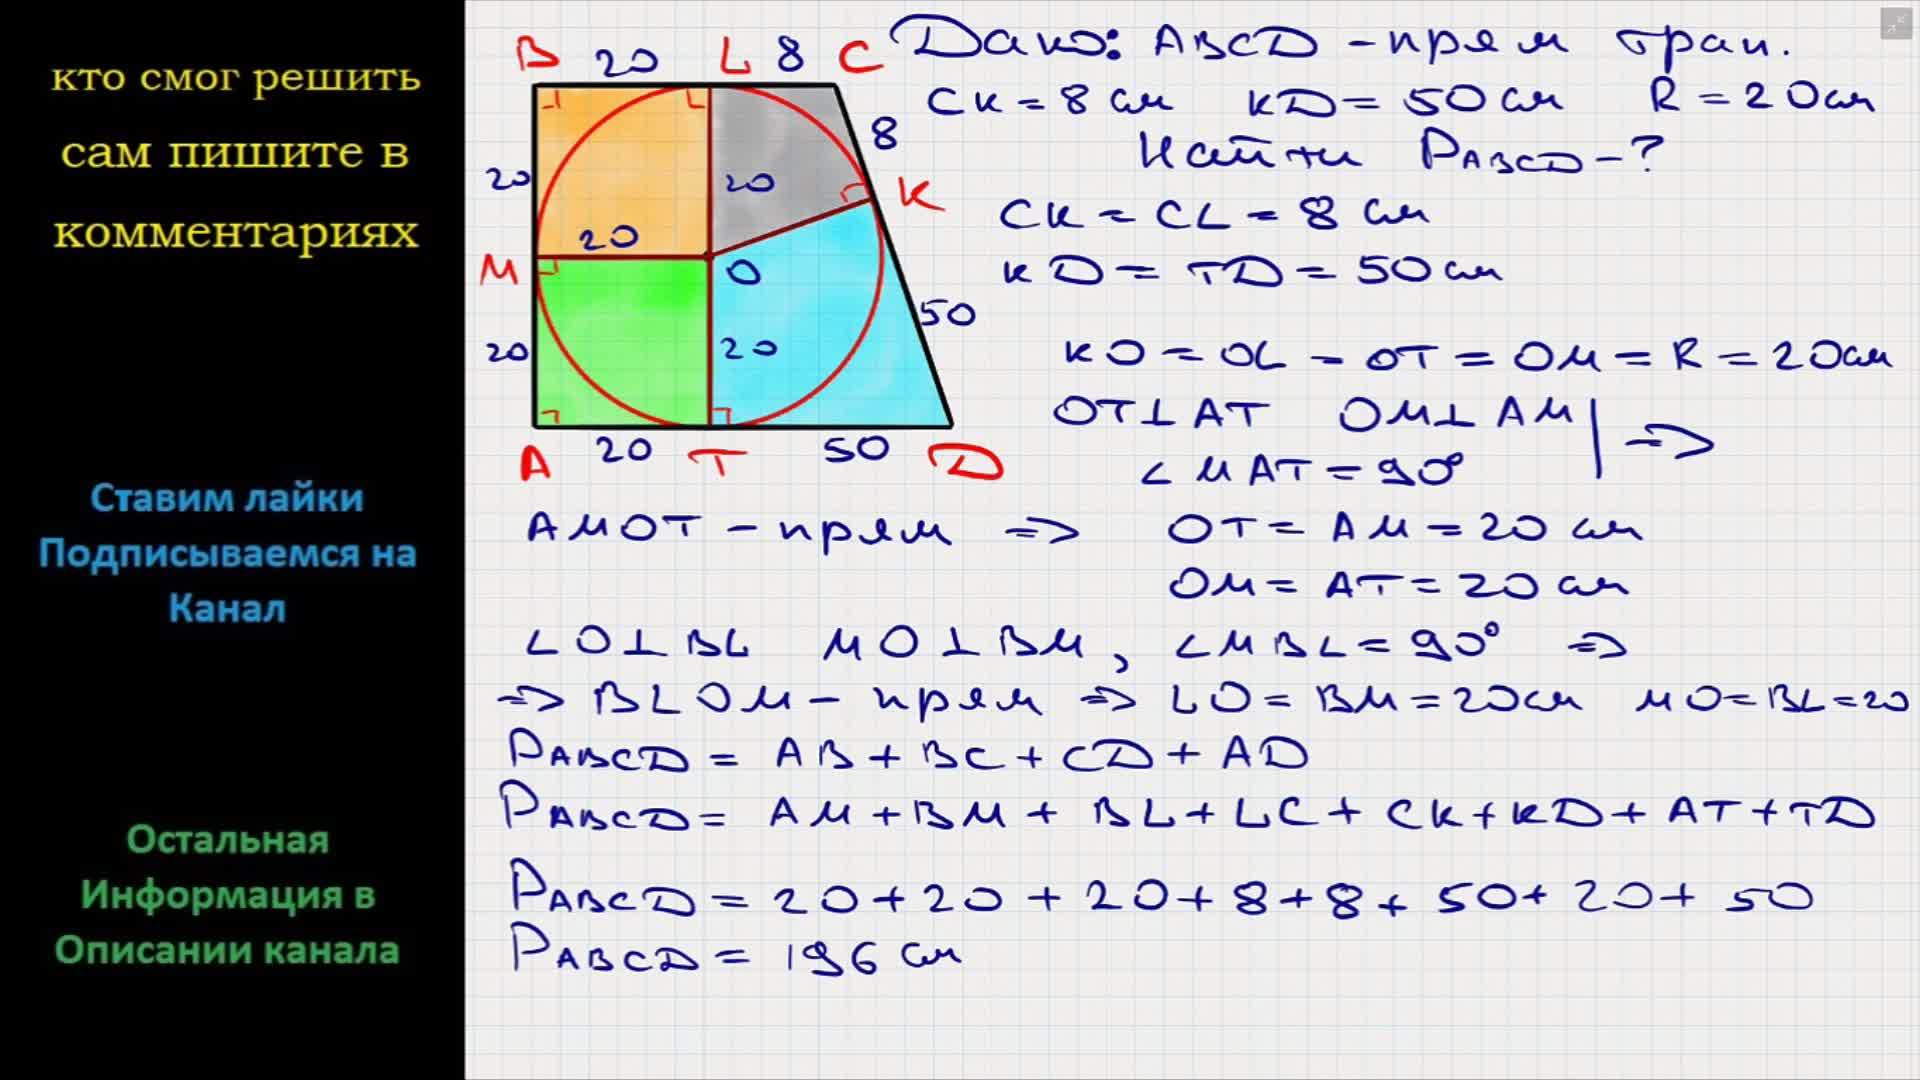 кто смог решить
сам пишите в
комментариях
Ставим лайки
Подписываемся на
Канал
Остальная
Информация в
Описании канала
B 20 L 8 C
20
20
8
K
M
20
O
50
20
20
A 20 T 50 D
Дано: ABCD - прям трап.
CK = 8 см KD = 50 см R = 20см
Найти PABCD - ?
CK = CL = 8 см
KD = TD = 50 см
KO = OL = OT = OM = R = 20см
OT ⊥ AT OM ⊥ AM | =>
∠MAT = 90°
AMOT - прям => OT = AM = 20 см
OM = AT = 20 см
LO ⊥ BL MO ⊥ BM, ∠MBL = 90° =>
=> BLOM - прям => LO = BM = 20см MO = BL = 20
PABCD = AB + BC + CD + AD
PABCD = AM + BM + BL + LC + CK + KD + AT + TD
PABCD = 20 + 20 + 20 + 8 + 8 + 50 + 20 + 50
PABCD = 196 см